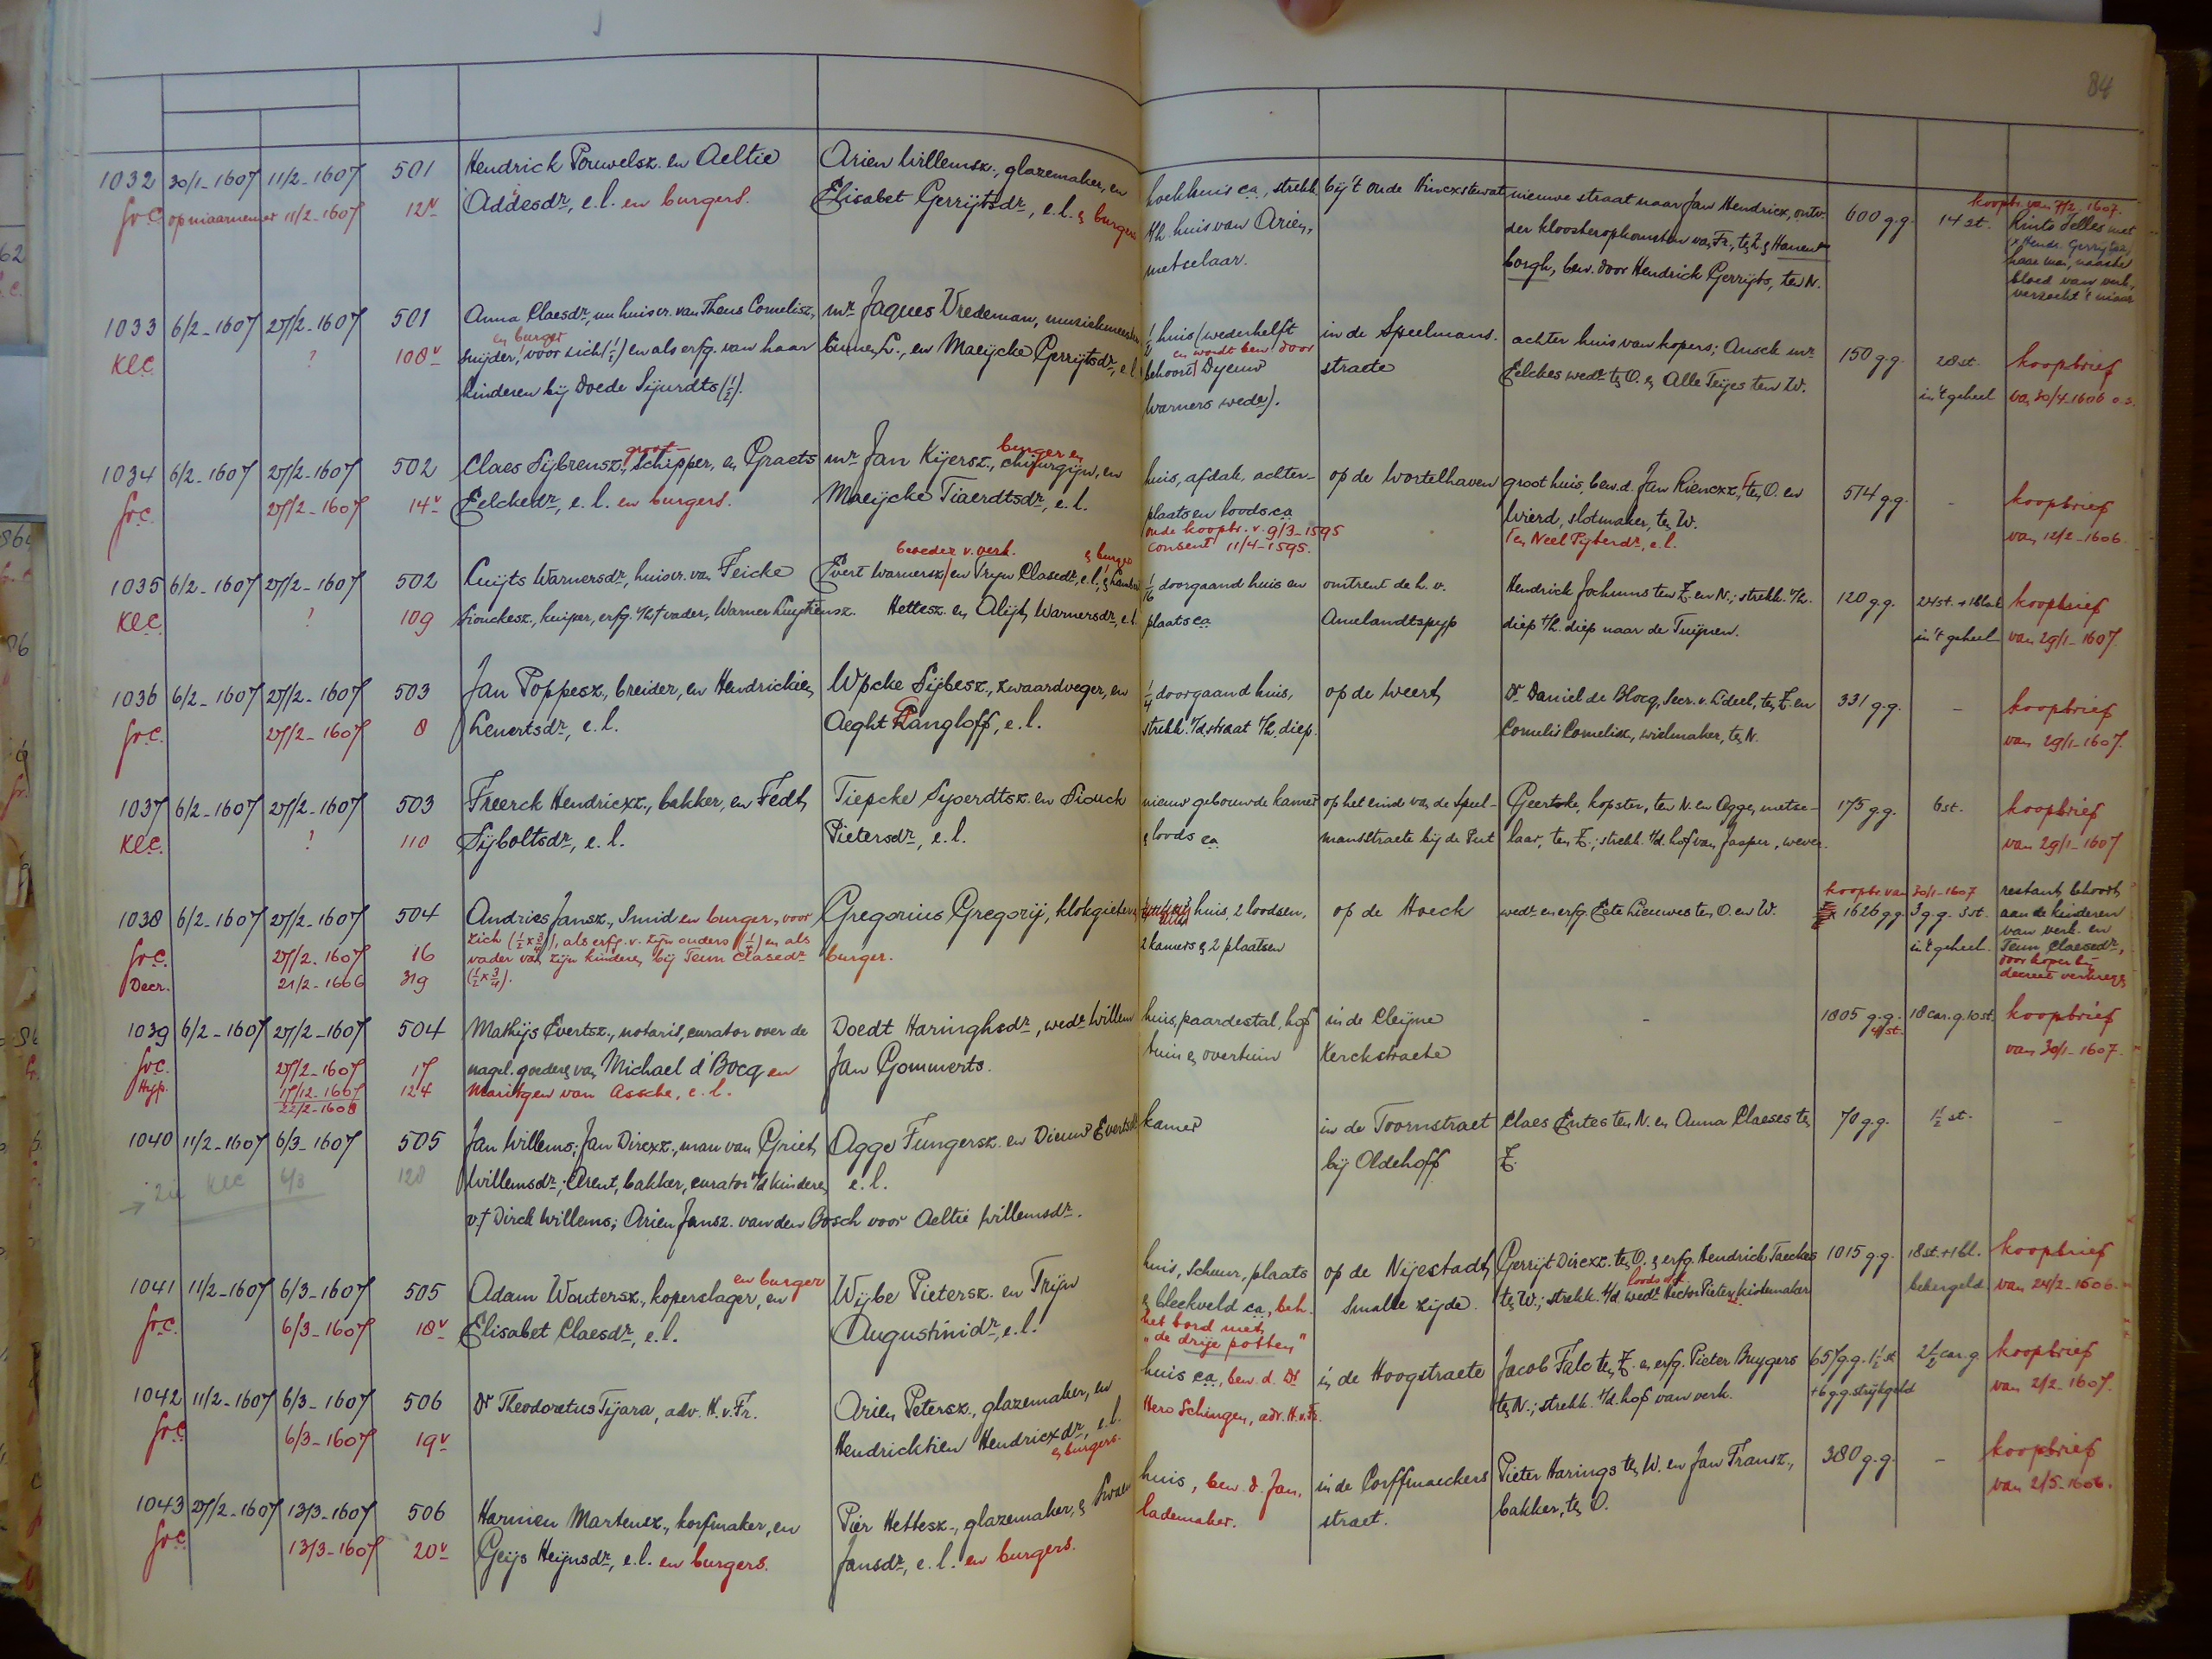 84
1032 30/1-1607 11/2-1607 501 Hendrick Pouwelsz. en Aeltie Arien Willemsz., glazemaker, en hoekhuis ca, strekk. bij 't oude nieuwe straat naar Jan Hendricx, ontv. 600 g.g. 14 st. koopbr. van 7/2-1607.
op niaarnemer 11/2-1607 12v Addesdr, e.l. en burgers. Elisabet Gerrijtsdr, e.l. & burgers t/h. huis van Arien, der kloosteropkomsten van Fr., ten Z. & Rints Jelles met
metselaar. borgh, bew. door Hendrick Gerrijts, ten N. naaste
bloed van verk.,
verzoekt 't niaar
1033 6/2-1607 27/2-1607 501 Anna Claesdr, nu huisvr. van Theus Cornelisz., mr. Jaques Vredeman, muziekmeester ½ huis (wederhelft in de Speelmans- achter huis van kopers; Ansck mr. 150 g.g. 28 st. koopbrief
en burger en wordt bew. door
KlC ? 108v snijder, voor zich (½) en als erfg. van haar binnen L., en Maeijcke Gerrijtsdr, e.l. behoort Dyeuw straete Eelckes wedr ten O. en Alle Teijes ten W. in 't geheel van 30/4-1606 o.s.
kinderen bij Doede Sijurdts (½). Warners wedr).
1034 6/2-1607 27/2-1607 502 Claes Sijbrensz., groot-schipper, en Graets mr. Jan Kijersz., burger en chirurgijn, en huis, afdak, achter- op de Wortelhaven groot huis, bew. d. Jan Riencxz., ten O. en 514 g.g. - koopbrief
27/2-1607 14v Eelckedr, e.l. en burgers. Maeijcke Tiaerdtsdr, e.l. plaats en loods ca Wierd, slotmaker, ten W. van 12/2-1606
oude koopbr. v. 9/3-1595 en Neel Pijtersdr, e.l.
consent 11/4-1595.
1035 6/2-1607 27/2-1607 502 Luijts Warnersdr, huisvr. van Feicke Evert Warnersz en Tryn Clasedr, e.l., & burger doorgaand huis en omtrent de L.v. Hendrick Jochums ten Z. en N.; strekk. v/h. 120 g.g. 24 st. koopbrief
KlC ? 109 Sionckesz., kuiper, erfg. v/h † vader, Warner Hettesz. en Alijt Warnersdr, e.l. plaats ca Amelandtspyp diep t/h. diep naar de Tuijnen. in 't geheel van 29/1-1607.
1036 6/2-1607 27/2-1607 503 Jan Poppesz., breider, en Hendrickien Wpcke Sijbesz., zwaardveger, en ¼ doorgaand huis, op de Weert Dr Daniel de Blocq, secr. v. L'deel, ten Z. en 331 g.g. - koopbrief
27/2-1607 8 Lenertsdr, e.l. Aeght Gangloff, e.l. strekk. v/d straat t/h. diep. Cornelis Cornelisz, wielmaker, ten N. van 29/1-1607.
1037 6/2-1607 27/2-1607 503 Freerck Hendricxz., bakker, en Fedt Tiepcke Syoerdtsz. en Siouck nieuw gebouwde kamer op het einde van de Speel- Geertske, kopster, ten N. en Agge, metse- 175 g.g. 6 st. koopbrief
KlC. ? 110 Sijboltsdr, e.l. Pietersdr, e.l. & loods ca mansstraete bij de Put laar, ten Z.; strekk. t/d. hof van Jasper, wever. van 29/1-1607
1038 6/2-1607 27/2-1607 504 Andries Jansz., smid en burger, voor Gregorius Gregorij, klokgieter & huis, 2 loodsen, op de Hoeck wedr. en erfg. Eete Lieuwes ten O. en W. koopbr. van 30/1-1607 1626 g.g. 3 g.g. 3 st. restant behoort
27/2-1607 16 zich (½ x ¾), als erfg. v. zijn ouders (¼) en als burger. 2 kamers & 2 plaatsen in 't geheel. aan de kinderen
Decr. 21/2-1666 319 vader van zijn kinderen bij Teun Clasedr van verk. en
(½ x ¾). Teun Claesedr,
door koper bij
decreet verkregen
1039 6/2-1607 27/2-1607 504 Mathijs Evertsz., notaris, curator over de Doedt Haringhsdr, wedr Willem huis, paardestal, hof in de Cleijne - 1805 g.g. 18 car. g. 10 st. koopbrief
27/2-1607 17 nagel. goederen van Michael d'Bocq en Jan Gommerts. tuin & overtuin Kerckstraete 4 st. van 30/1-1607.
Hyp. 17/12-1607 124 Maritgen van Assche, e.l.
22/2-1608
1040 11/2-1607 6/3-1607 505 Jan Willems; Jan Dircxz., man van Griet Agge Fungersz. en Dieuw Evertsdr kamer in de Toornstraet Claes Entes ten N. en Anna Claeses ten 70 g.g. 1½ st. -
→ zie KlC 6/3 128 Willemsdr; Arent, bakker, curator o/d kinderen e.l. bij Oldehoff Z.
v. † Dirck Willems; Arien Jansz. van den Bosch voor Aeltie Willemsdr.
1041 11/2-1607 6/3-1607 505 Adam Woutersz., koperslager, en burger en Wijbe Pietersz. en Trijn huis, schuur, plaats op de Nijestadt Gerrijt Dircxz. ten O. & erfg. Hendrick Taeckes 1015 g.g. 18 st. + 1 bl. koopbrief
6/3-1607 18v Elisabet Claesdr, e.l. Augustinidr, e.l. & bleekveld ca, beh. smalle zijde. ten W.; strekk. t/d. loods v/d wedr Hector Pieters, kistemaker bekergeld van 24/2-1606.
het bord met
"de drije potten"
1042 11/2-1607 6/3-1607 506 Dr Theodoretus Tijara, adv. H.v.Fr. Arien Petersz., glazemaker, en huis ca, bew. d. Dr in de Hoogstraete Jacob Falc ten Z. en erfg. Pieter Bruygers 657 g.g. 1½ st. 2½ car. g. koopbrief
6/3-1607 19v Hendricktien Hendricxdr, e.l. Hero Schingen, adv. H.v.Fr. ten N.; strekk. t/d. hof van verk. + 6 g.g. strijkgeld van 2/2-1607.
& burgers.
1043 27/2-1607 13/3-1607 506 Harmen Martensz., korfmaker, en Pier Hettesz., glazemaker, & huis, bew. d. Jan, in de Corffmaeckers Pieter Harings ten W. en Jan Fransz., 380 g.g. - koopbrief
13/3-1607 20v Geijs Heijnsdr, e.l. en burgers. Jansdr, e.l. en burgers. lademaker. straet. bakker, ten O. van 2/5-1606.